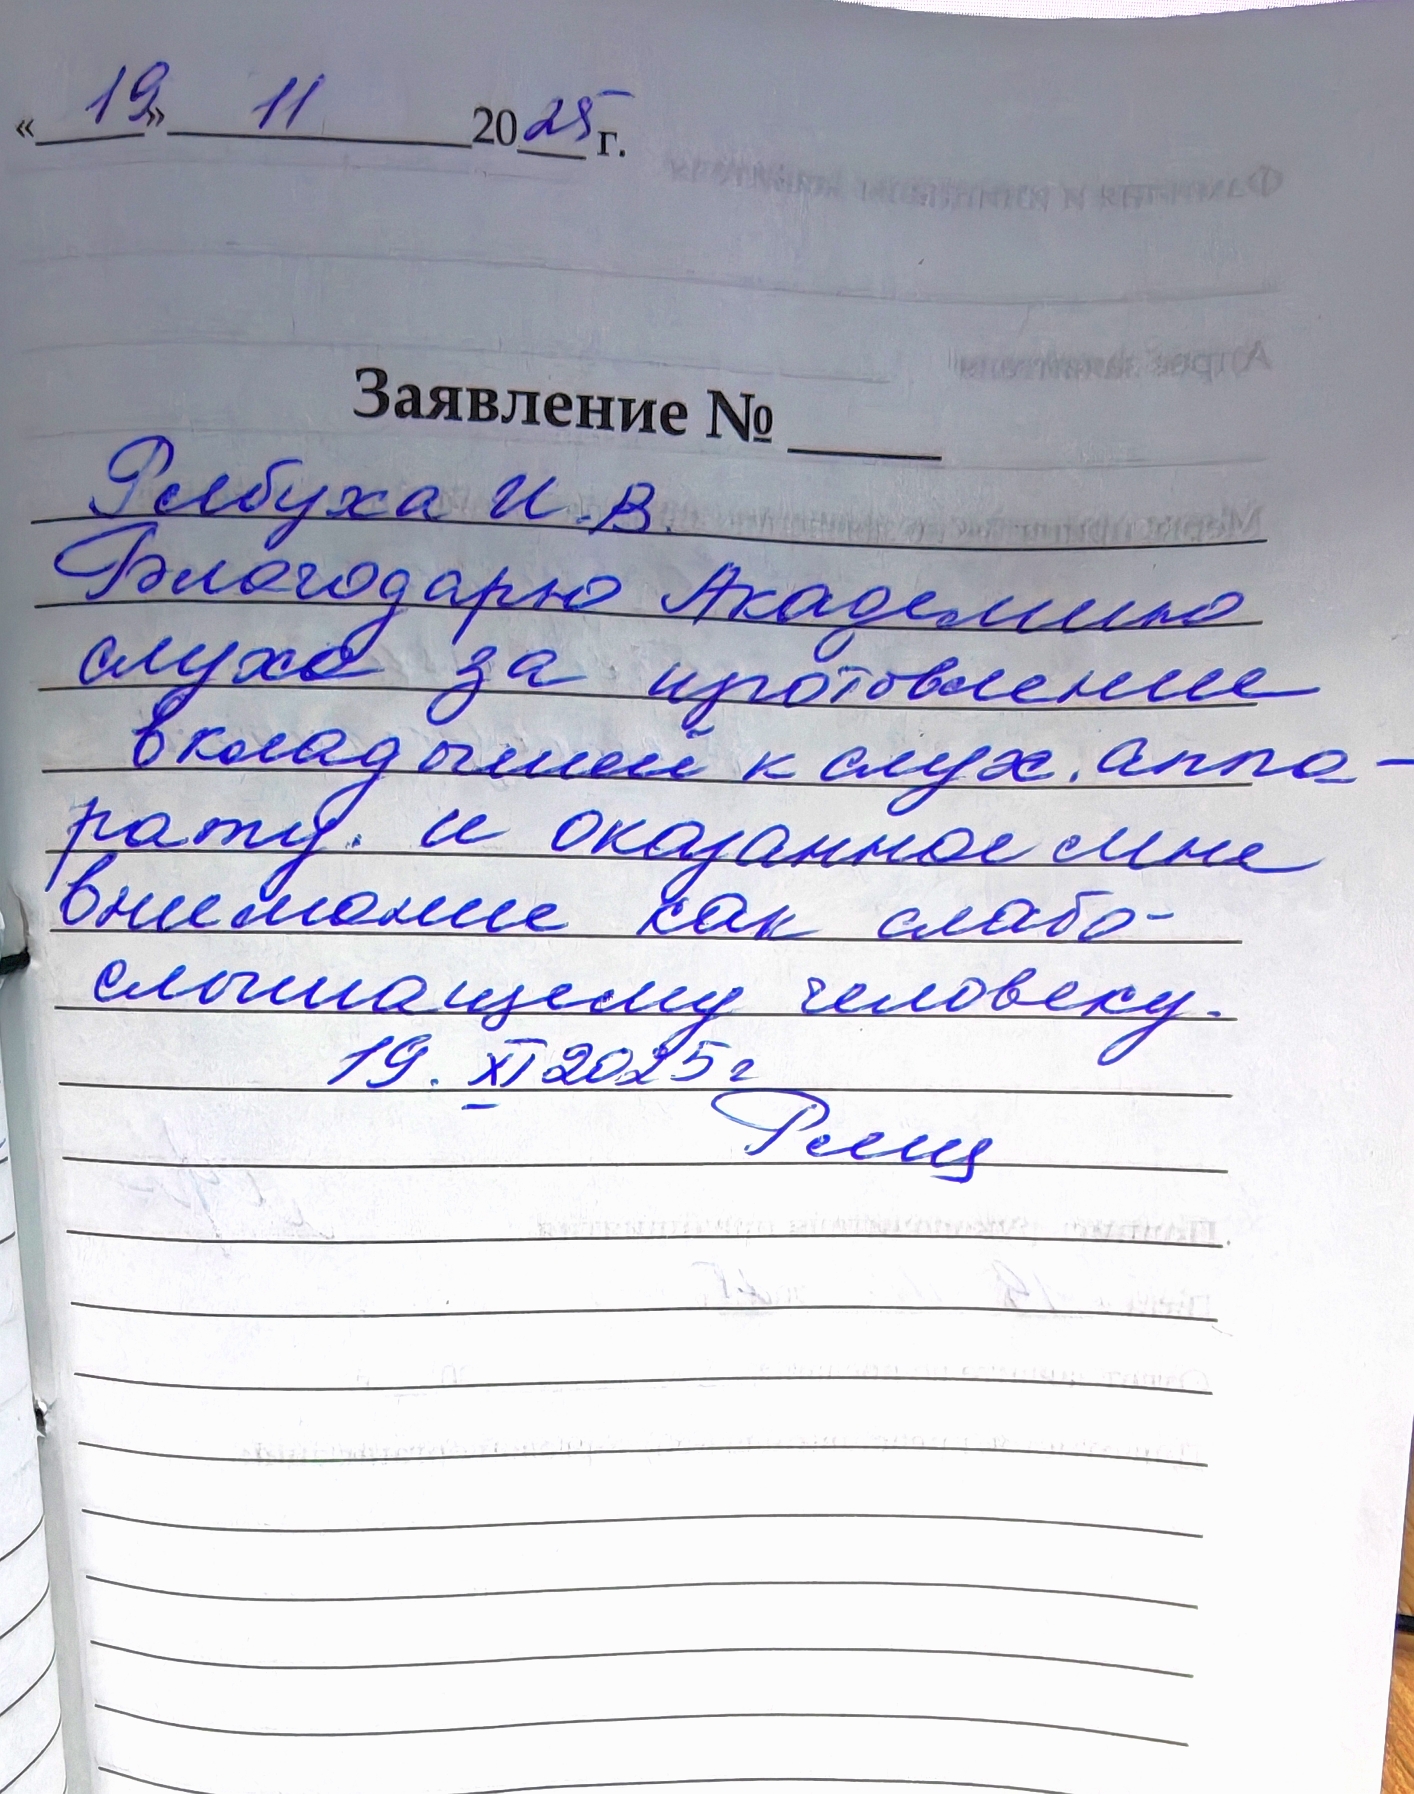 «19» 11 2025 г.
Заявление № ____
Рябуха И.В.
Благодарю Академию
слуха за изготовление
вкладышей к слух. аппа-
рату. и оказанное мне
внимание как слабо-
слышащему человеку.
19. XI 2025 г